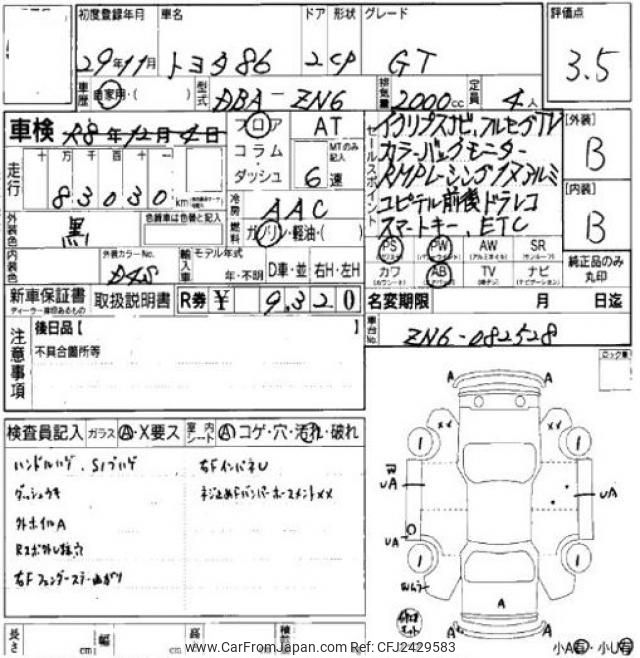 初度登録年月 車名 ドア 形状 グレード 評価点
29年11月 トヨタ86 2 CP GT 3.5
車歴 自家用・( ) 型式 DBA-ZN6 排気量 2000cc 定員 4人
車検 R8年12月4日 フロア AT セールスポイント イクリプスナビ,フルセグTV 【外装】
走行 十 万 千 百 十 一 コラム・ MTのみ記入 カラーバックモニター B
83030 km ダッシュ 6速 RMPレーシング17アルミ
外装色 黒 色替車は色替と記入 冷房 AAC コピテル前後ドラレコ 【内装】
燃料 ガソリン・軽油・( ) スマートキー、ETC B
内装色 外装カラーNo. D4S 輸入車 モデル年式 年・不明 D車・並 右H・左H
PS PW AW SR 純正品のみ丸印
(パワステ) (パワーウィンド) (アルミホイル) (サンルーフ)
カワ AB TV ナビ
(カワシート) (エアバッグ) (ナビゲーション)
新車保証書 取扱説明書 R券 ¥ 9,320 名変期限 月 日迄
ディーラー捺印あるもの
注意事項 後日品【 】 車台No. ZN6-082528
不具合箇所等
検査員記入 ガラス A・X要ス 室内シート A コゲ・穴・汚れ・破れ
ハンドルハゲ、S/ブハゲ 右FインパネU
ダッシュウキ ネジ止めFバンパーホースメントXX
外ホイルA
右Fフェンダーステー曲がり
A A
XX XX
1 1
W
UA UA
UA
1 1
A
A A
小A有・小U有
長さ cm 幅 cm 高 cm
www.CarFromJapan.com Ref: CFJ2429583